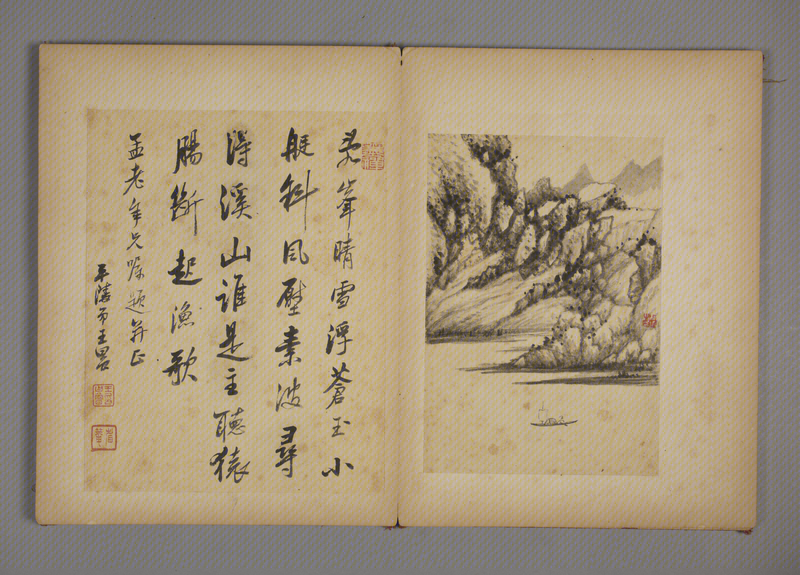 羣峯晴雪浮蒼玉小
艇斜風壓素波尋
得溪山誰是主聽猿
腸斷起漁歌
孟老年兄囑題并正
平陵弟王